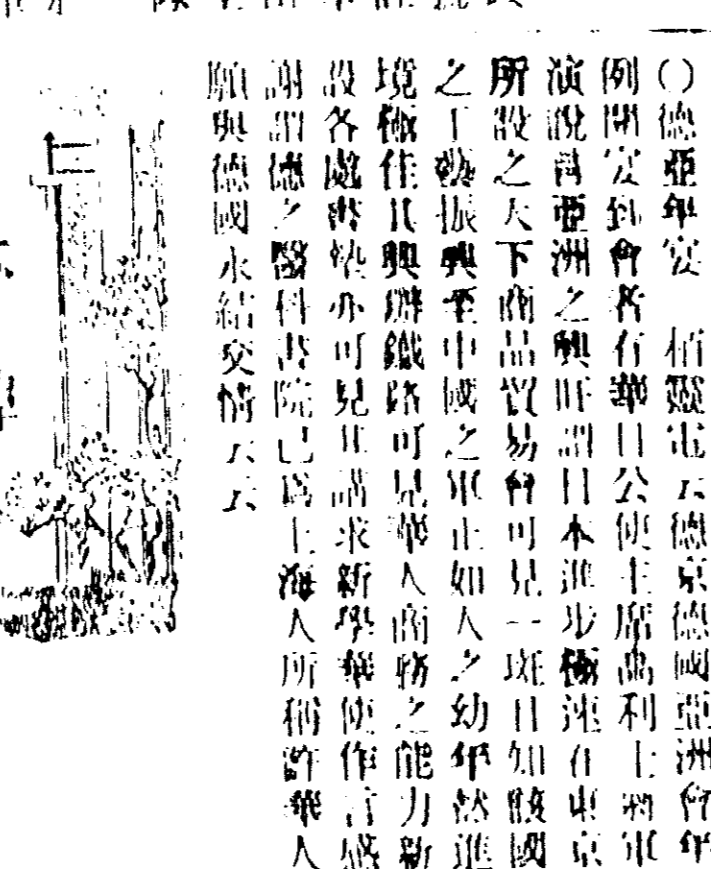 ()德亞年宴 栢電云德京德國亞洲會年
例開宴到會者有華日公使主席高利士將軍
演說亞洲之興旺謂日本進步極速在東京
所設之天下商品貿易會可見一斑且如該國
之工藝振興至中國之軍正如人之幼年然進
境極佳其興辦鐵路可見華人商務之能力新
設各處書塾亦可見其講求新學華使作言感
謝謂德之醫科書院已爲上海人所稱許華人
願與德國永結交情云云